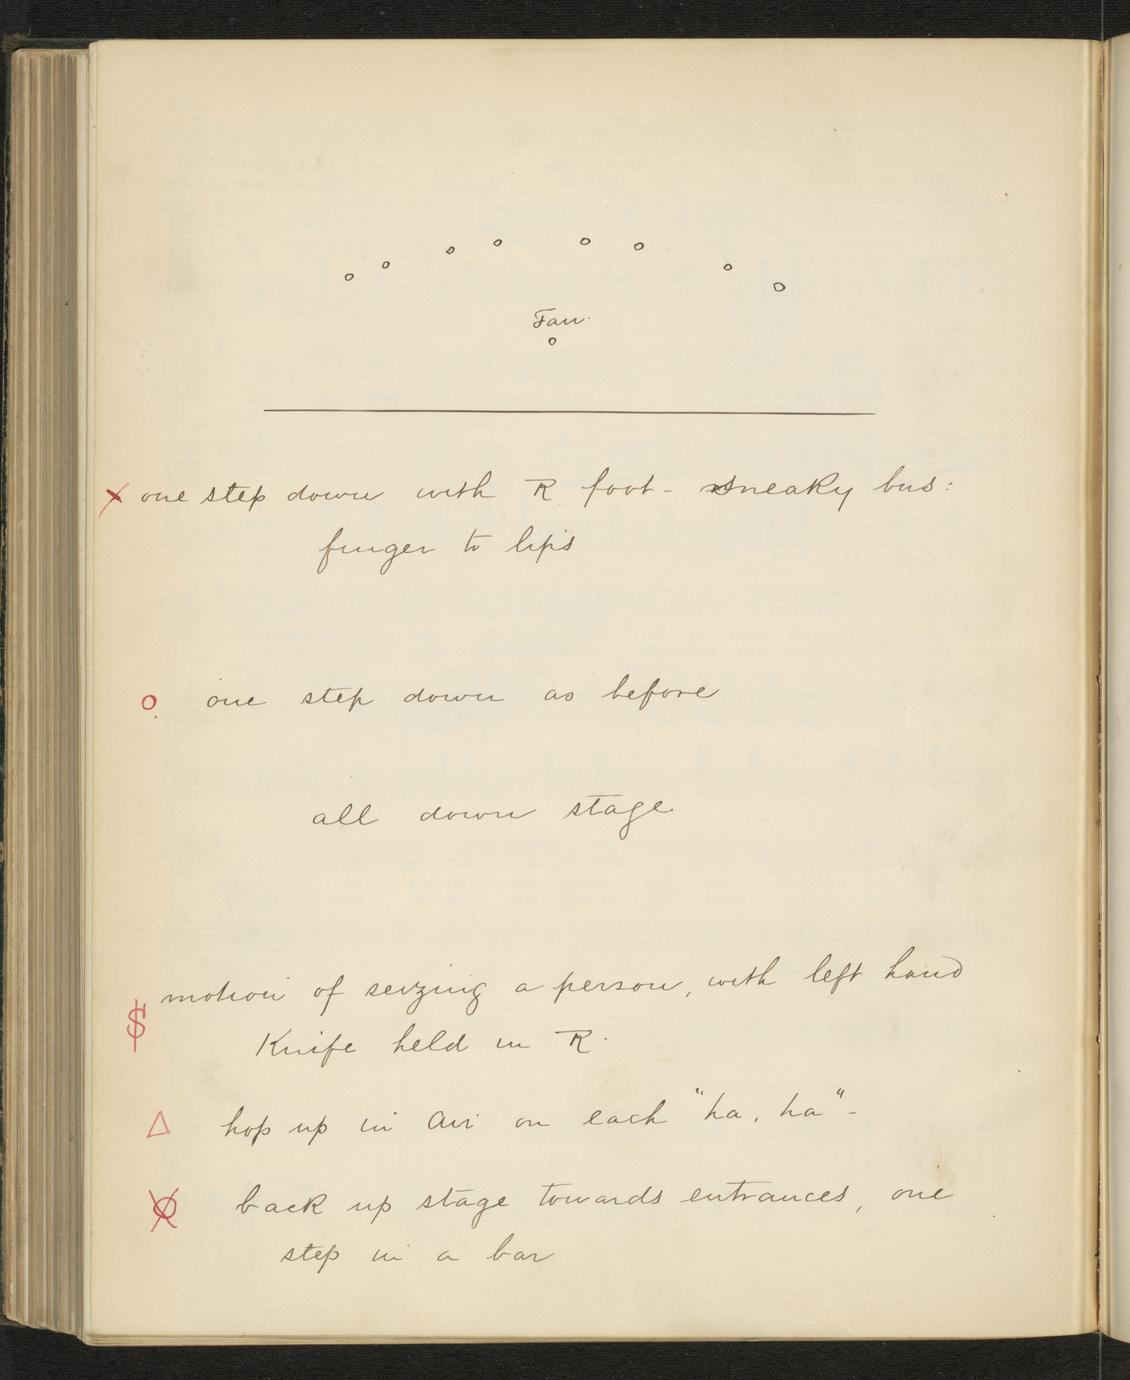 Fan.
x one step down with R. foot - sneaky bus:
finger to lips
o. one step down as before
all down stage
$ motion of seizing a person, with left hand
Knife held in R.
Δ hop up in air on each "ha, ha" -
back up stage towards entrances, one
step in a bar